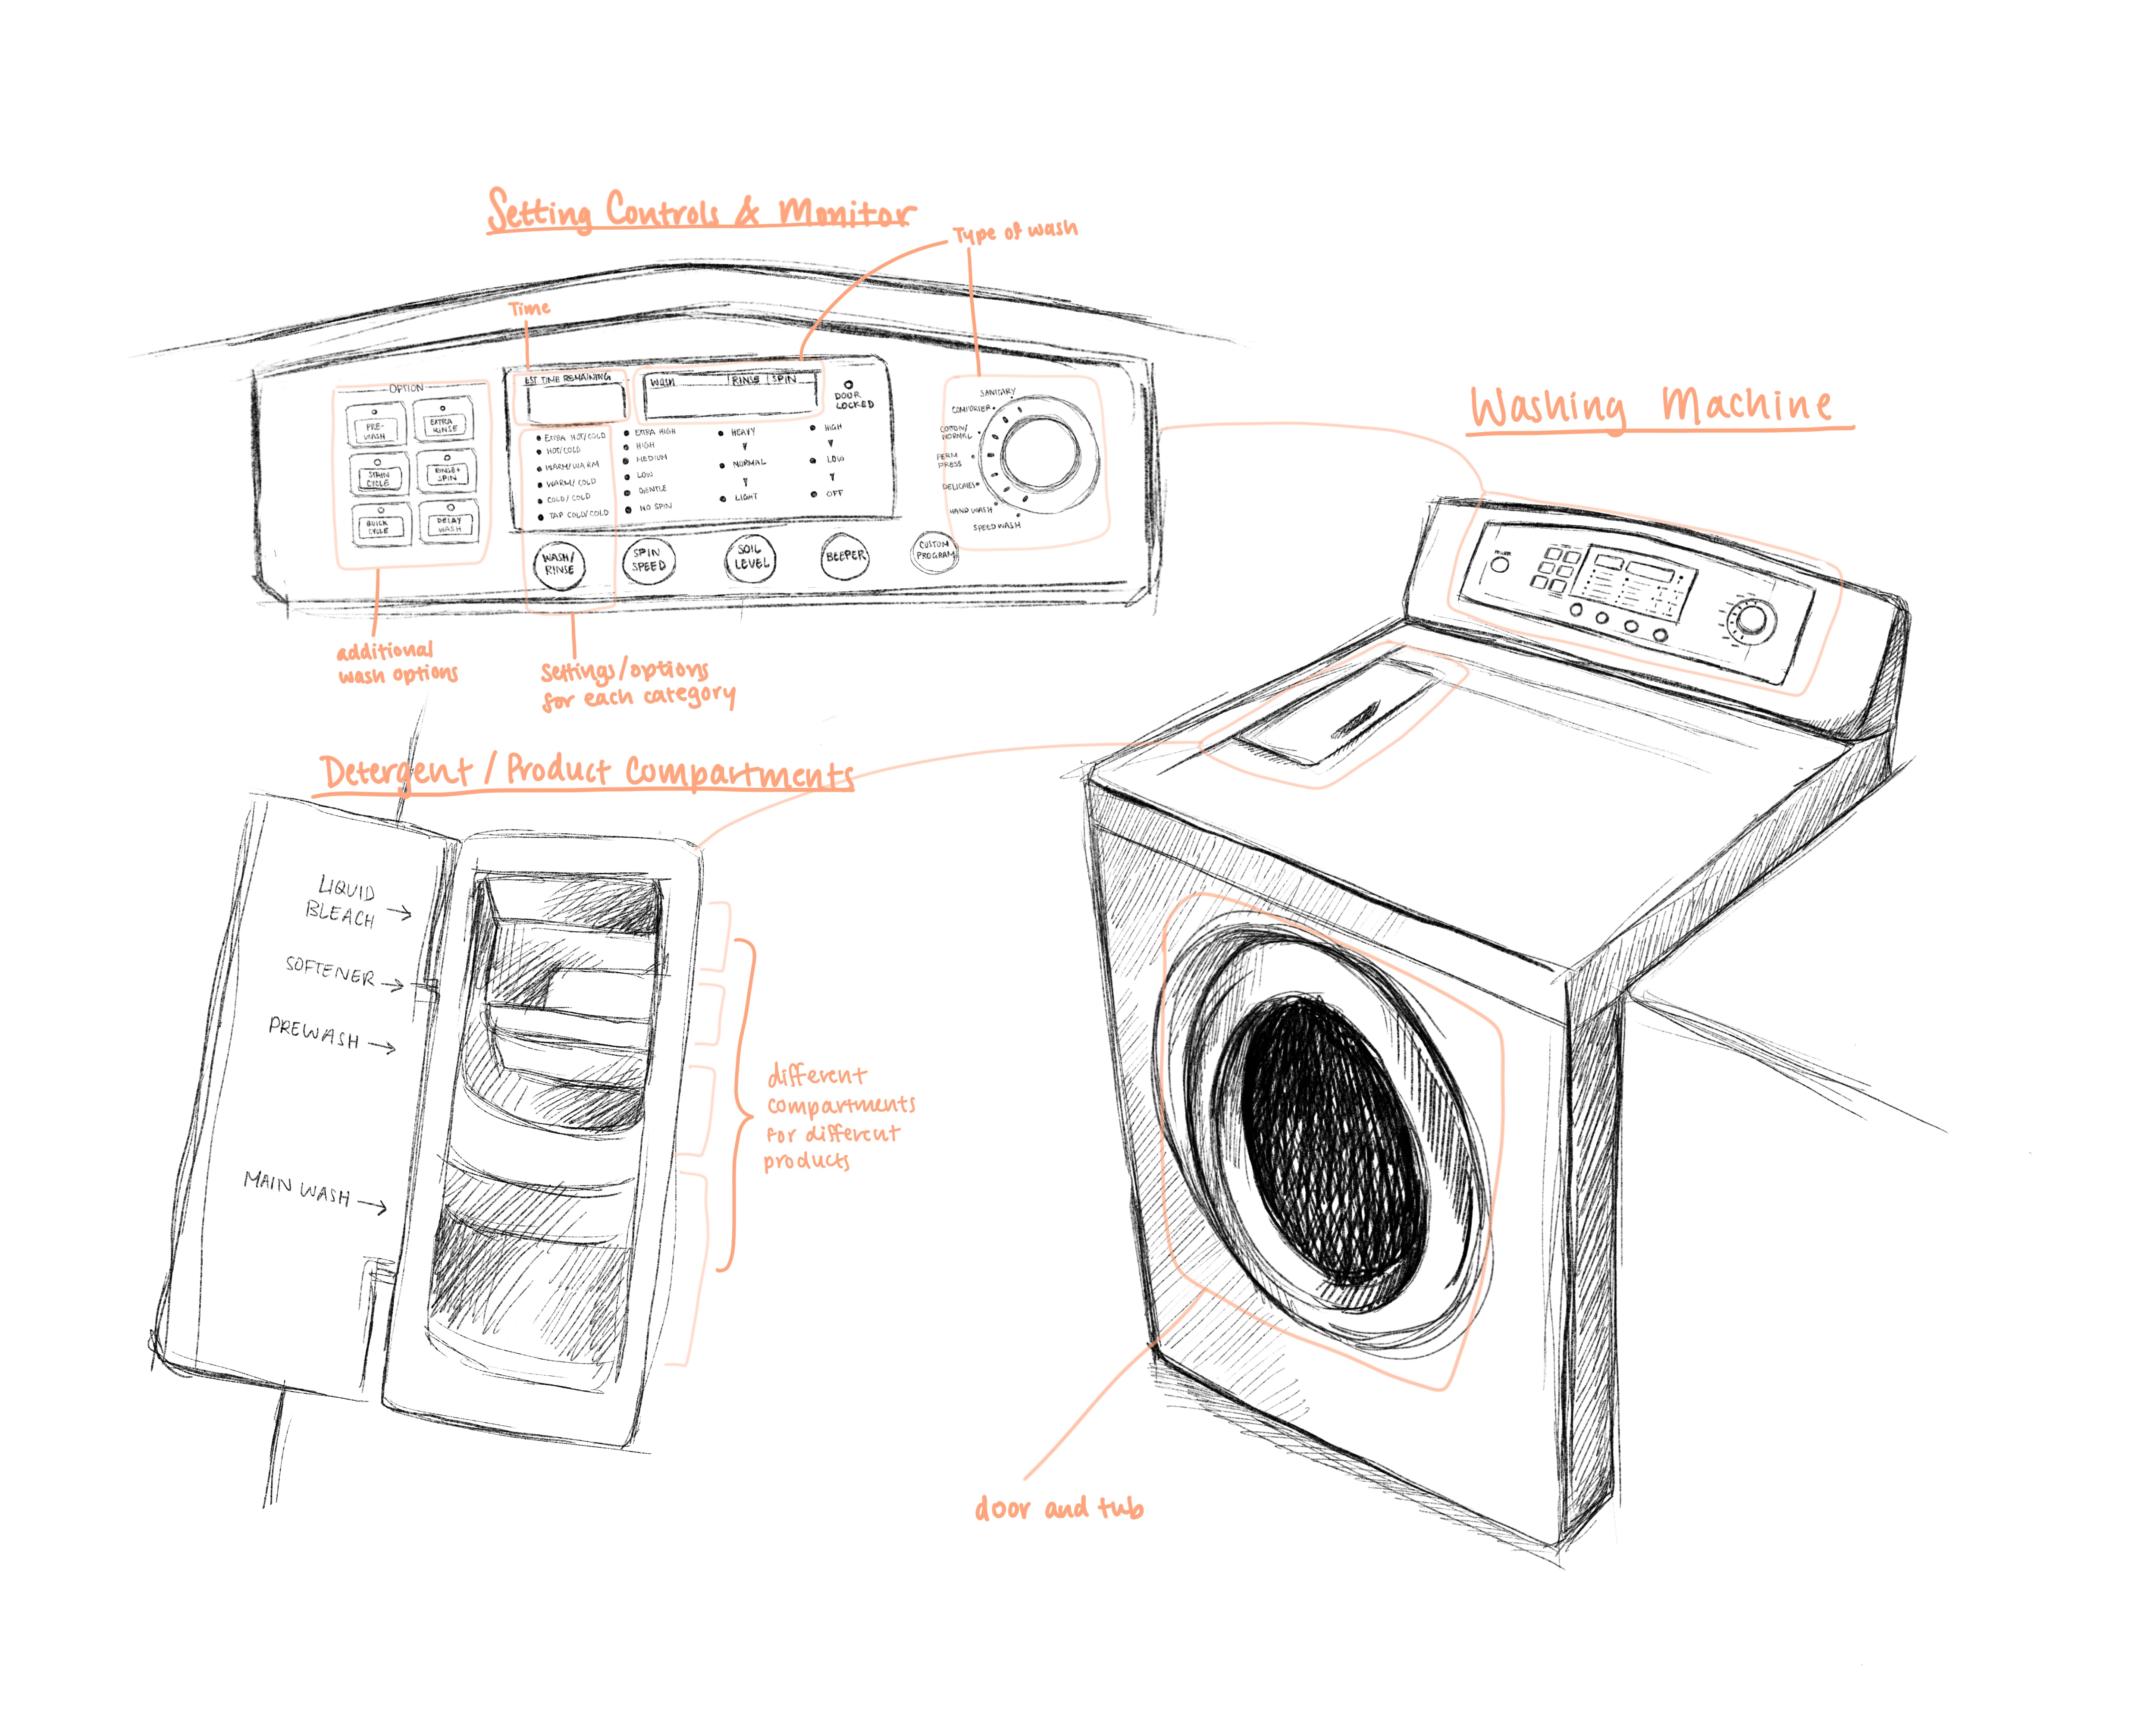 Setting Controls & Monitor
Type of wash
Time
OPTION
PRE-
WASH
EXTRA
RINSE
STAIN
CYCLE
RINSE+
SPIN
QUICK
CYCLE
DELAY
WASH
EST TIME REMAINING
WASH
RINSE
SPIN
DOOR
LOCKED
EXTRA HOT/COLD
HOT/COLD
WARM/WARM
WARM/COLD
COLD/COLD
TAP COLD/COLD
EXTRA HIGH
HIGH
MEDIUM
LOW
GENTLE
NO SPIN
HEAVY
NORMAL
LIGHT
HIGH
LOW
OFF
WASH/
RINSE
SPIN
SPEED
SOIL
LEVEL
BEEPER
CUSTOM
PROGRAM
SANITARY
COMFORTER
COTTON/
NORMAL
PERM
PRESS
DELICATES
HAND WASH
SPEED WASH
additional
wash options
Settings/options
for each category
Washing Machine
Detergent / Product Compartments
LIQUID
BLEACH →
SOFTENER →
PREWASH →
MAIN WASH →
different
compartments
for different
products
door and tub